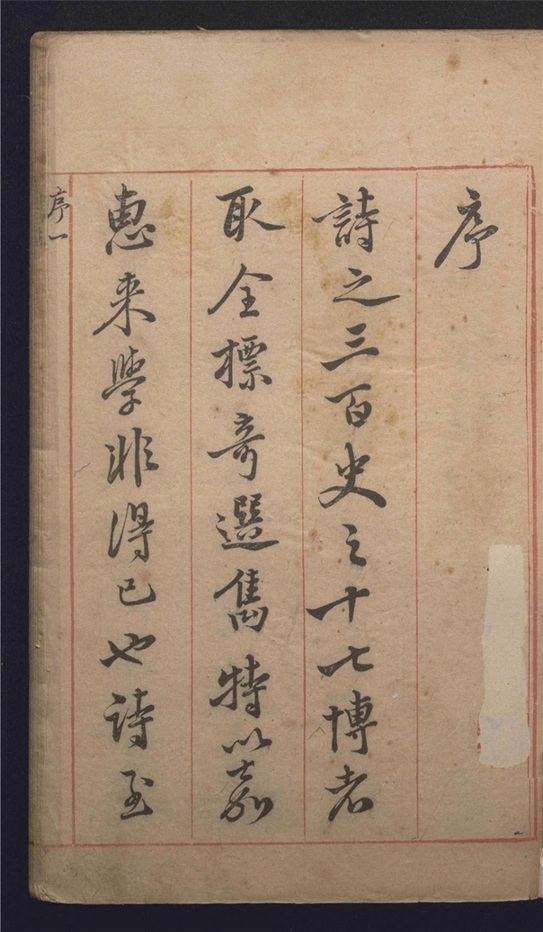 序
詩之三百史之十七博者
取全標奇選雋特以嘉
惠来學非得已也詩至
序一